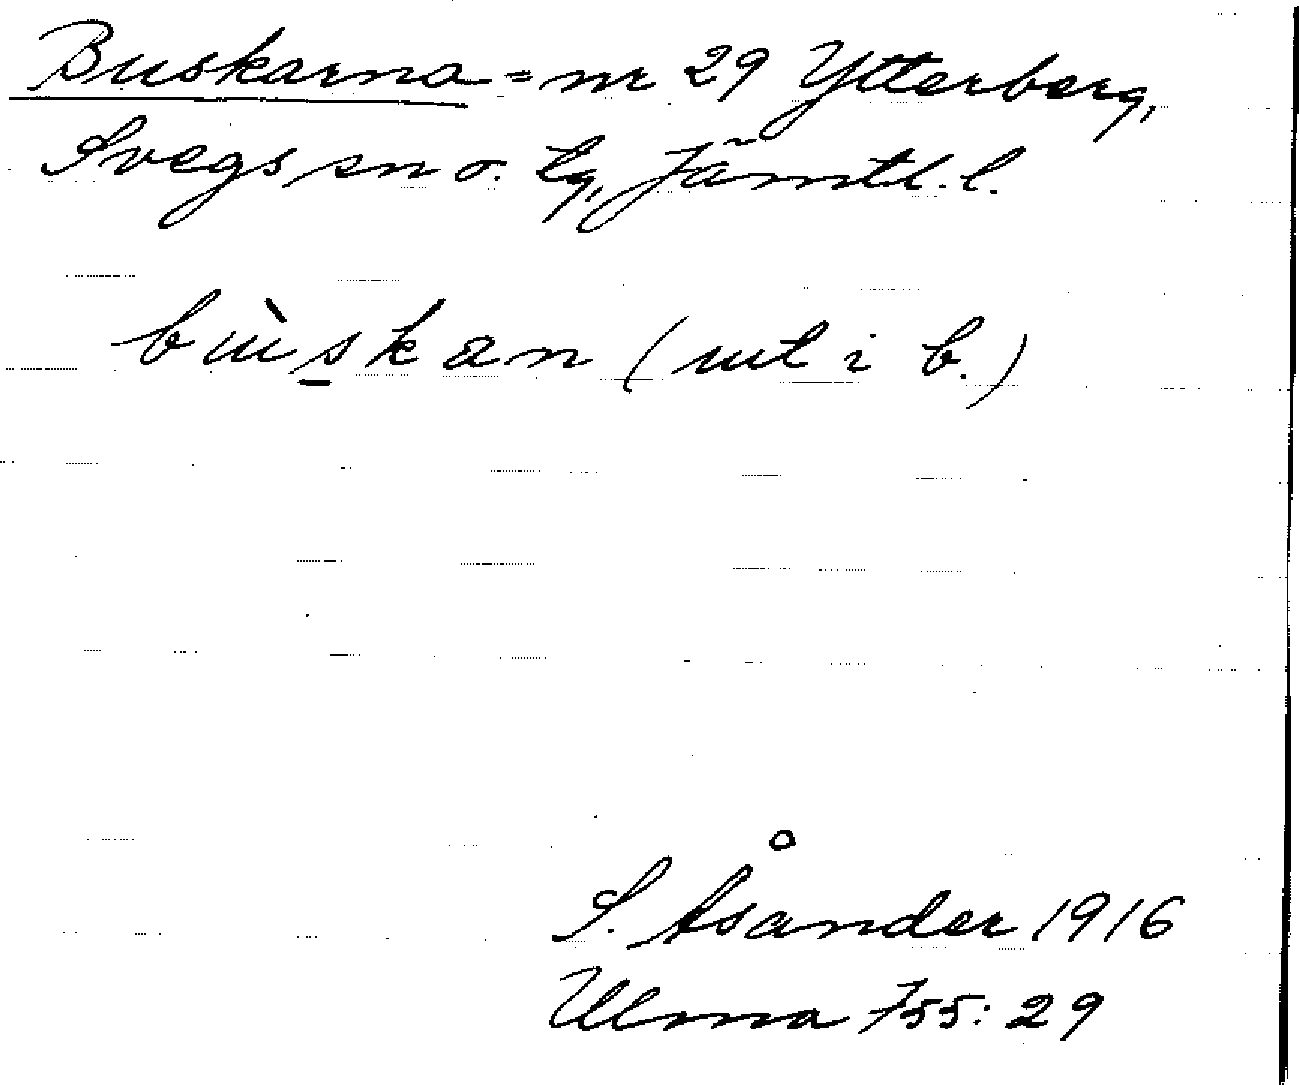 Buskarna = nr 29 Ytterberg,
Svegs sn o. lg, Jämtl. l.
bùskan (ut i b.)
S. Åsander 1916
Ulma 755: 29